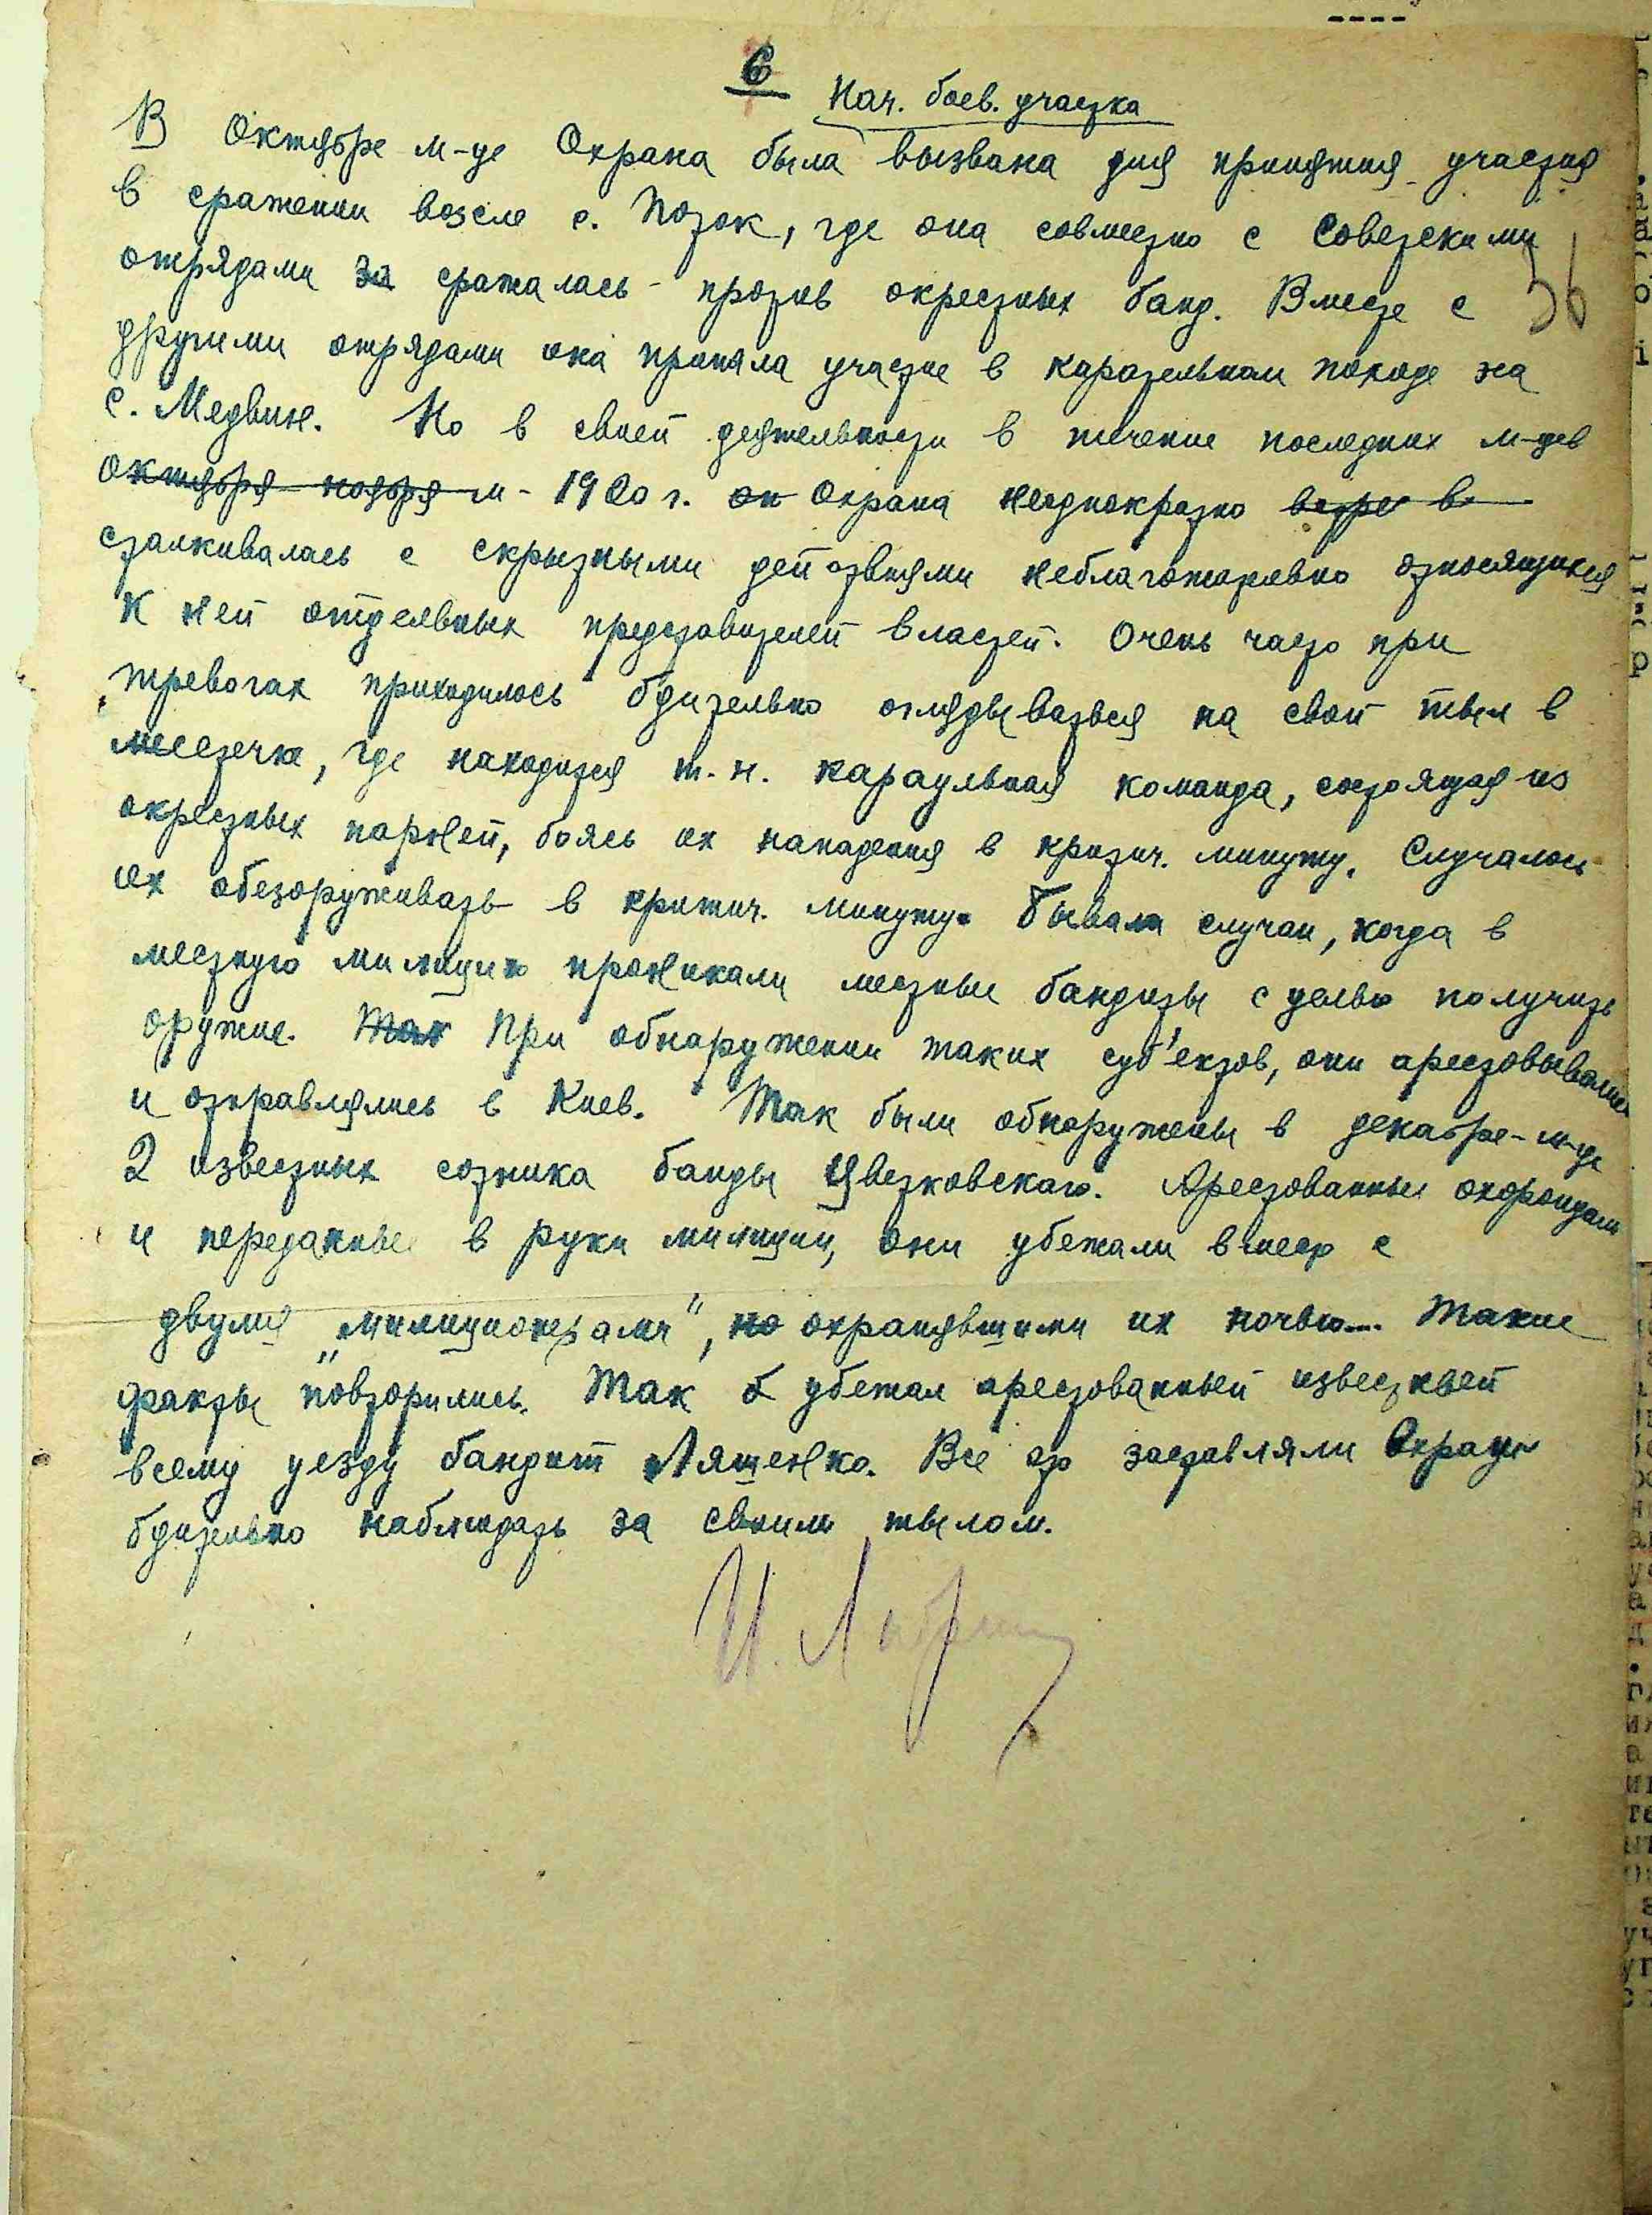 6
Нач. боев. участка
В Октябре м-це Охрана была вызвана для принятия участия
в сражении возле с. Поток, где она совместно с Советскими
отрядами за сражалась - против окрестных банд. Вместе с
36
другими отрядами она приняла участие в карательном походе на
с. Медвин. Но в своей деятельности в течение последних м-цев
октября - ноября - м - 1920 г. он Охрана неоднократно встре в
сталкивалась с скрытными действиями неблаготворевно относящихся
к ней отдельных представителей властей. Очень часто при
тревогах приходилось бдительно оглядываться на свой тыл в
местечке, где находится т. н. караульная команда, состоящая из
окрестных парней, боясь их нападения в критич. минуту. Случалось
их обезоруживать в критич. минуту. Бывали случаи, когда в
местную милицию проникали местные бандиты с целью получить
оружие. Так При обнаружении таких суб'ектов, они арестовывались
и отправлялись в Киев. Так были обнаружены в декабре - м-це
2 известных сотника банды Цветковскаго. Арестованные охранцами
и переданные в руки милиции, они убежали вместе с
двумя „милиционерами", но охранявшими их ночью.... Такие
факты повторились. Так б убежал арестованный известный
всему уезду бандит Ляшенко. Все это заставляли Охрану
бдительно наблюдать за своим тылом.